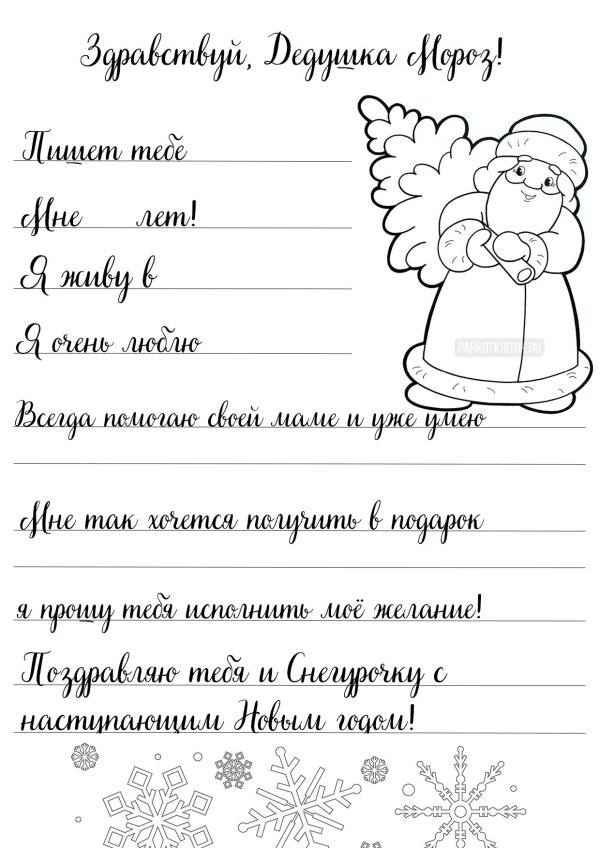 Здравствуй, Дедушка Мороз!
Пишет тебе
Мне лет!
Я живу в
Я очень люблю
PARKOTKRITOK.RU
Всегда помогаю своей маме и уже умею
Мне так хочется получить в подарок
я прошу тебя исполнить моё желание!
Поздравляю тебя и Снегурочку с
наступающим Новым годом!